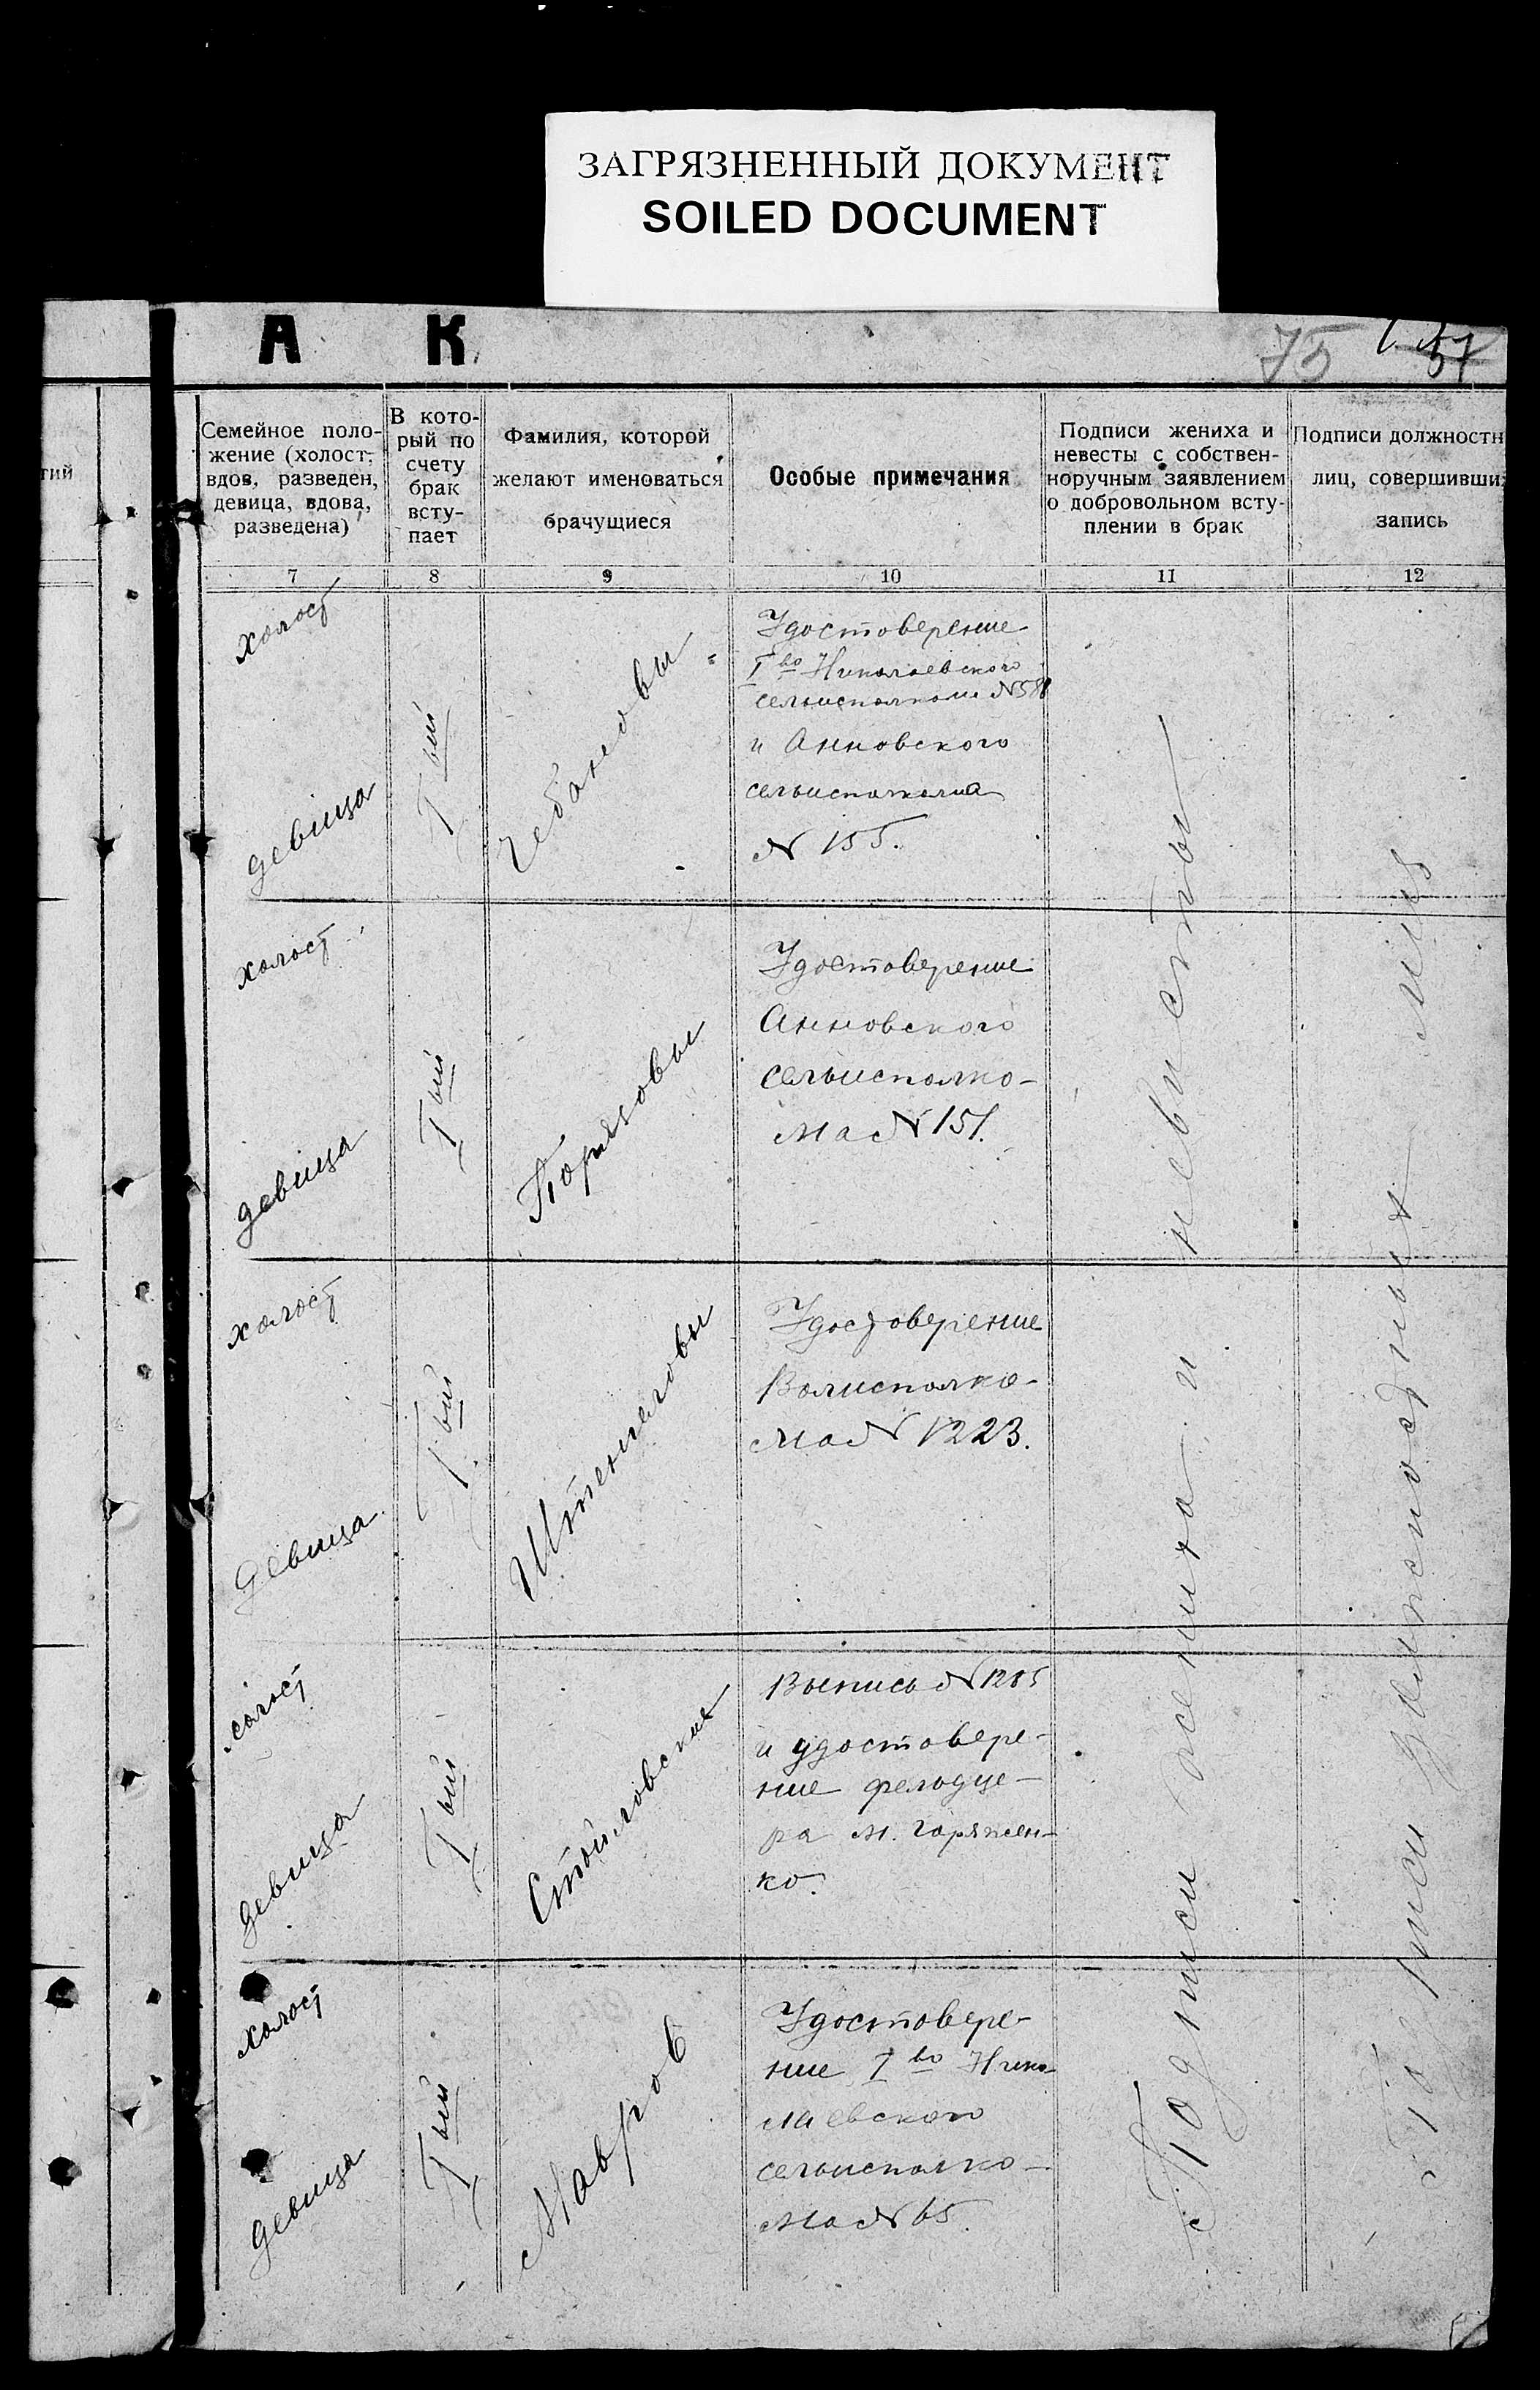 ЗАГРЯЗНЕННЫЙ ДОКУМЕНТ
SOILED DOCUMENT
А К
75
57
тий
Семейное поло-
жение (холост,
вдов, разведен,
девица, вдова,
разведена)
В кото-
рый по
счету
брак
всту-
пает
Фамилия, которой
желают именоваться
брачущиеся
Особые примечания
Подписи жениха и
невесты с собствен-
норучным заявлением
о добровольном всту-
плении в брак
Подписи должностн
лиц, совершивши
запись
7
8
9
10
11
12
холост
девица
I ый
Чебановы
Удостоверение
I во Николаевского
сельисполкома №588
и Анновского
сельисполкома
№ 155.
холост
девица
I ый
Удостоверение
Анновского
сельисполко-
ма № 151.
холост
девица
I ый
Удостоверение
Волисполко-
ма № 1223.
холост
девица
I ый
Стойловские
Выпись № 1285
и удостовере-
ние фельдше-
ра М.
ко.
холост
девица
I ый
Мавров
Удостовере-
ние I во Нико-
лаевского
сельисполко-
ма № 65.
Подписи жениха и невисты
Подписи должностных лиц